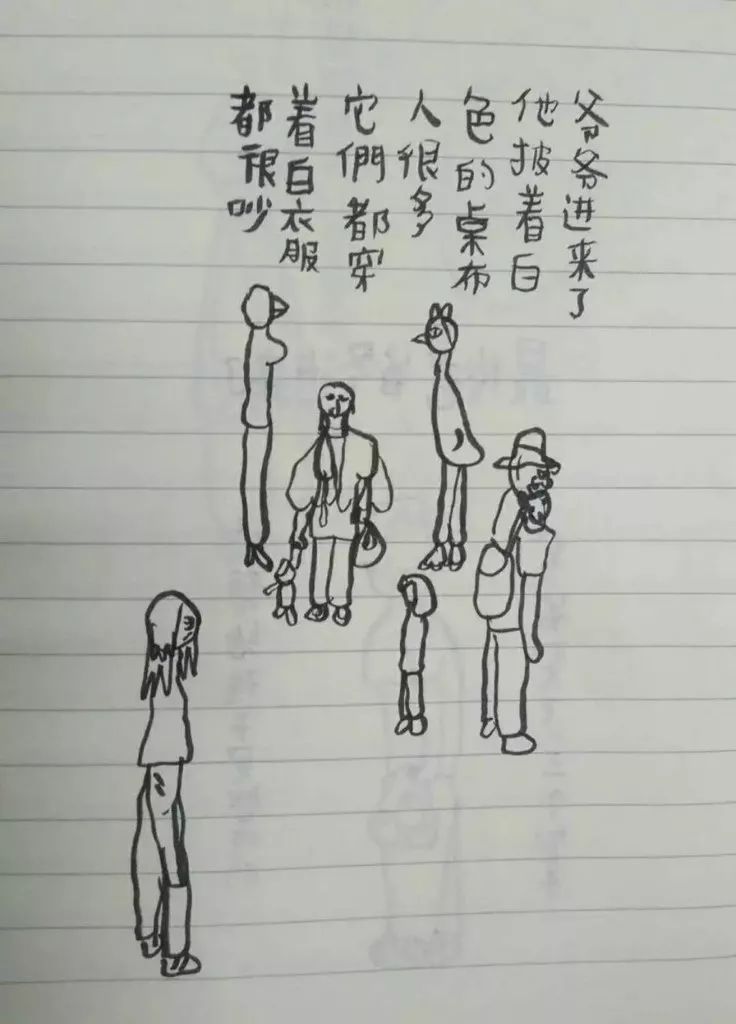 爷爷进来了
他披着白
色的桌布
人很多
它們都穿
着白衣服
都很吵